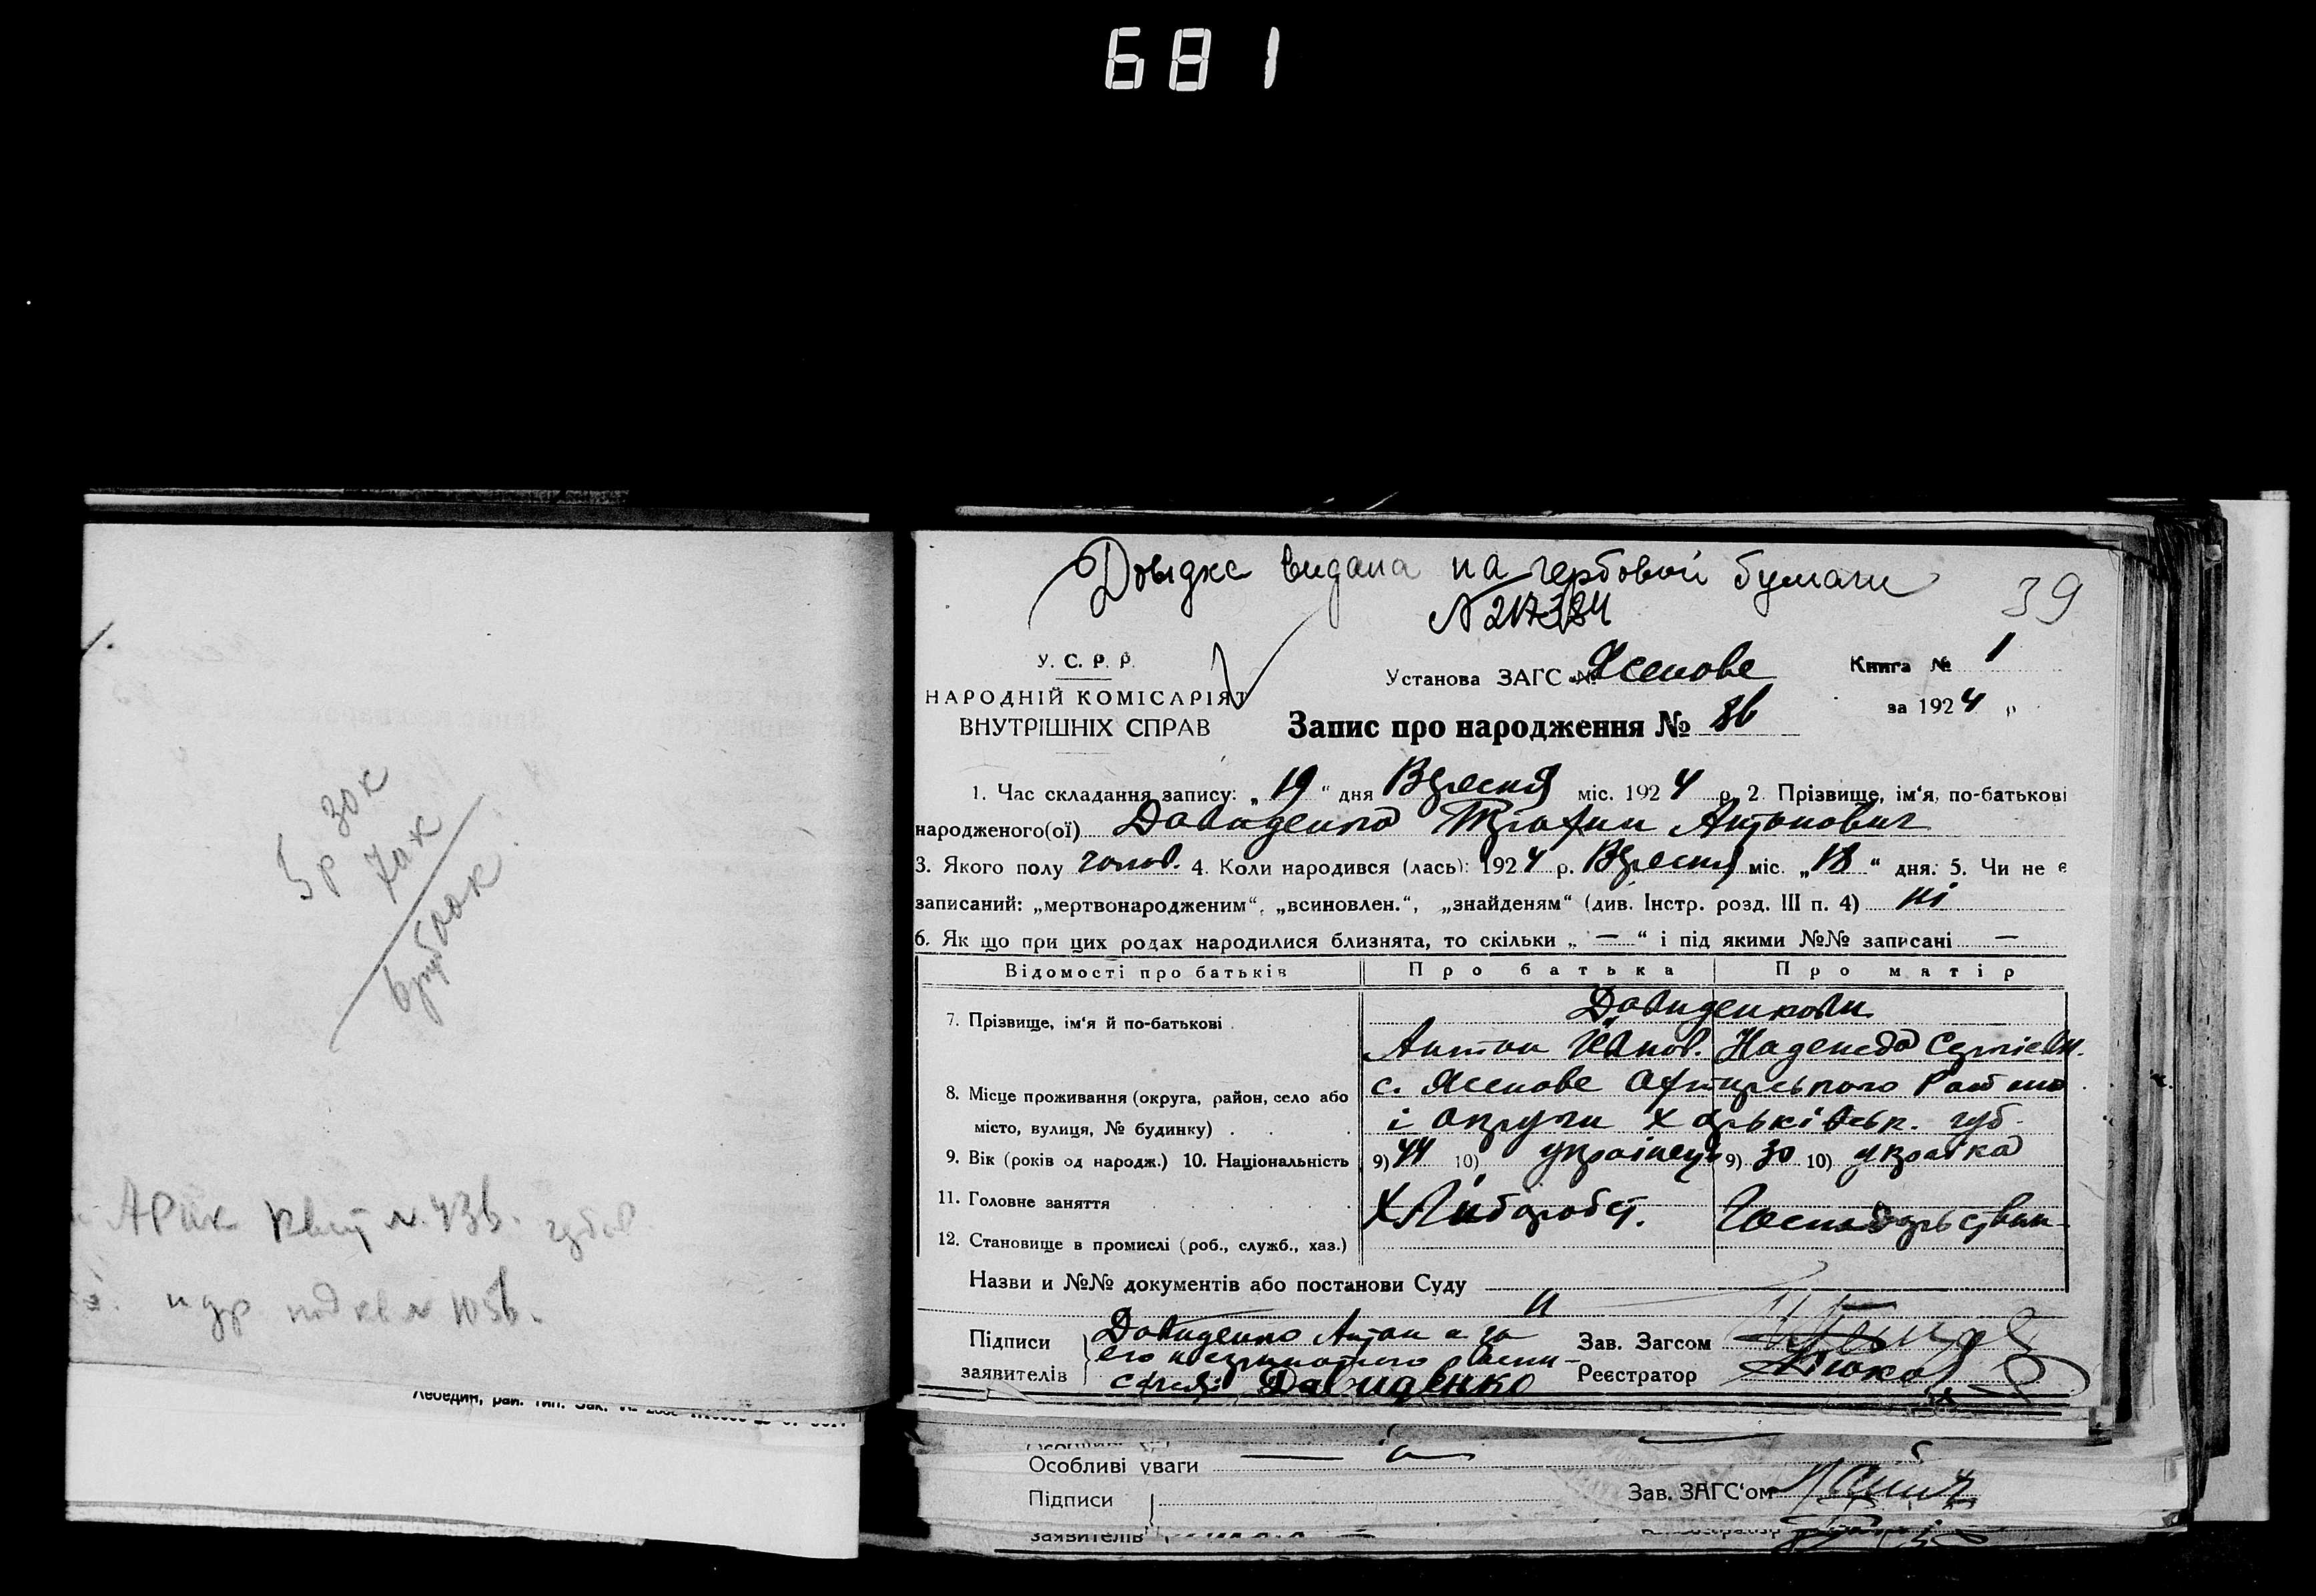 681
3р 30к
70к
АРик Квит №. 436.
и др под кв № 1056.
Лебедин, рай. тип. Зак.
Довідка видана на гербовой бумаги
39
У. С. Р. Р.
НАРОДНІЙ КОМІСАРІЯТ
ВНУТРІШНІХ СПРАВ
Установа ЗАГС № Ясенове
Книга № 1
за 1924 р
Запис про народження № 86
1. Час складання запису: „19“ дня Вересня міс. 1924 р. 2. Прізвище, ім‘я, по-батькові
народженого(ої) Давиденко Трохим Антонович
3. Якого полу чолов. 4. Коли народився (лась): 1924 р. Вересня міс. „18“ дня. 5. Чи не є
записаний: „мертвонародженим“, „всиновлен.“, „знайденям“ (див. Інстр. розд. III п. 4) ні
6. Як що при цих родах народилися близнята, то скільки „—“ і під якими №№ записані —
Відомості про батьків Про батька Про матір
7. Прізвище, ім‘я й по-батькові
Давиденкови
Антон Іванов. Надежда Сергієвн.
8. Місце проживання (округа, район, село або
місто, вулиця, № будинку)
с. Ясенове Охтирського Району
і округи Харьківськ. губ.
9. Вік (років од народж.) 10. Національність 9) 44 10) українець 9) 30 10) українка
11. Головне заняття Хлібороб Господарство
12. Становище в промислі (роб., служб., хаз.)
Назви и №№ документів або постанови Суду
Підписи
заявителів
Давиденко Антон а за
его неграмотного
Давиденко
Зав. Загсом
Реєстратор
Особливі уваги
Підписи
заявителів
Зав. ЗАГС‘ом